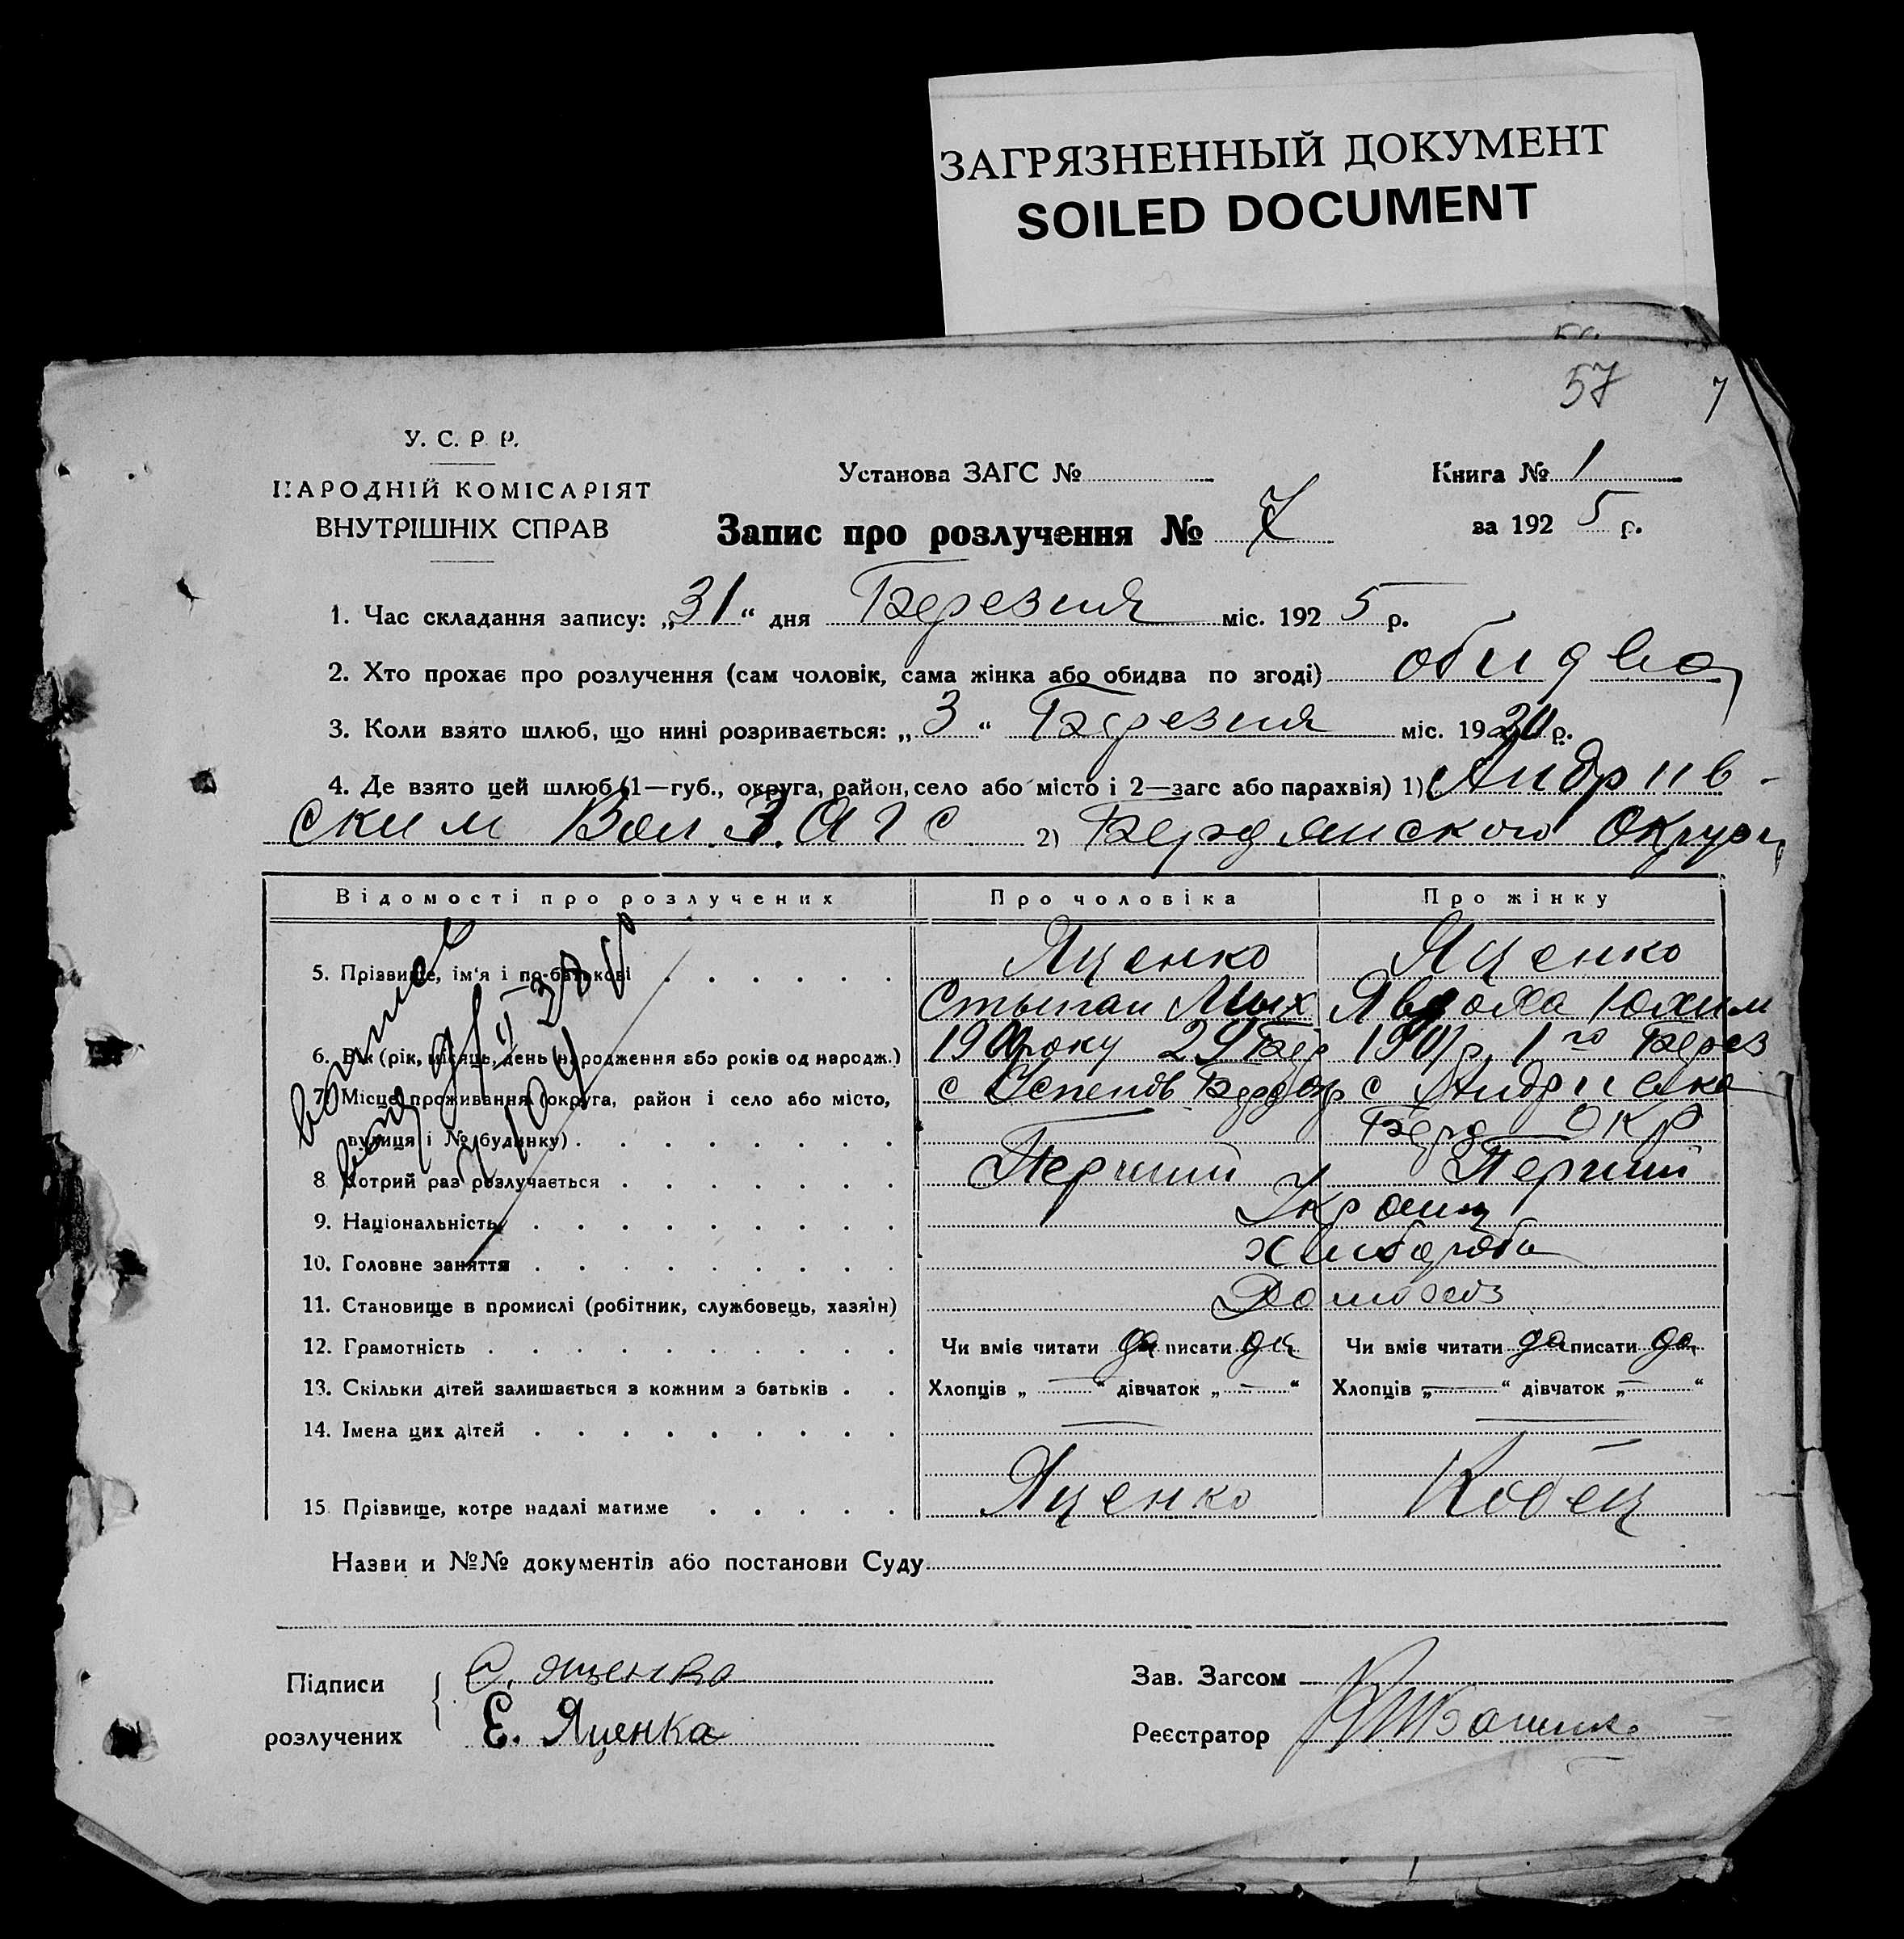 ЗАГРЯЗНЕННЫЙ ДОКУМЕНТ
SOILED DOCUMENT
57 7
У. С. Р. Р.
НАРОДНІЙ КОМІСАРІЯТ
ВНУТРІШНІХ СПРАВ
Установа ЗАГС №
Книга № 1
за 1925 р.
Запис про розлучення № 7
1. Час складання запису: „31“ дня Березня міс. 1925 р.
2. Хто прохає про розлучення (сам чоловік, сама жінка або обидва по згоді) обидва
3. Коли взято шлюб, що нині розривається: „3“ Березня міс. 1920 р.
4. Де взято цей шлюб (1—губ., округа, район, село або місто і 2—загс або парахвія) 1) Андрив-
ским Вол. ЗАГС 2) Бердянского Округу
Відомості про розлучених Про чоловіка Про жінку
5. Прізвище, ім'я і по-батькові Яценко Яценко
Стыпан Мых Явдоха Юхим
6. Вік (рік, місяць, день народження або років од народж.) 1900 року 24 Бер 1901 р. 1го Берез
7. Місце проживання (округа, район і село або місто, с Успенов Берд окр с Андриевка
вулиця і № будинку) Берд ОКР
8. Котрий раз розлучається Перший Перший
9. Національність Украин
10. Головне заняття Хлибороби
11. Становище в промислі (робітник, службовець, хазяїн)
12. Грамотність Чи вміє читати да писати да Чи вміє читати да писати да
13. Скільки дітей залишається з кожним з батьків Хлопців „—“ дівчаток „—“ Хлопців „—“ дівчаток „—“
14. Імена цих дітей — —
15. Прізвище, котре надалі матиме Яценко Кобец
Назви и №№ документів або постанови Суду
Підписи
розлучених
С. Яценко
Е. Яценка
Зав. Загсом
Реєстратор